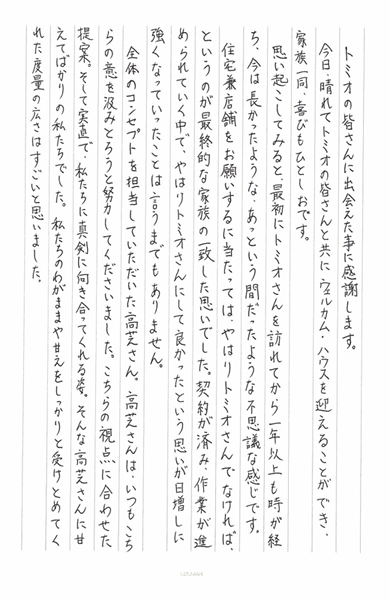 トミオの皆さんに出会えた事に感謝します。
今日、晴れてトミオの皆さんと共に、ウェルカム・ハウスを迎えることができ、
家族一同、喜びもひとしおです。
思い起こしてみると、最初にトミオさんを訪れてから一年以上も時が経
ち、今は長かったような、あっという間だったような不思議な感じです。
住宅兼店舗をお願いするに当たっては、やはりトミオさんでなければ、
というのが最終的な家族の一致した思いでした。契約が済み、作業が進
められていく中で、やはりトミオさんにして良かったという思いが日増しに
強くなっていったことは言うまでもありません。
全体のコンセプトを担当していただいた高芝さん。高芝さんは、いつもこち
らの意を汲みとろうと努力してくださいました。こちらの視点に合わせた
提案。そして実直で、私たちに真剣に向き合ってくれる姿。そんな高芝さんに甘
えてばかりの私たちでした。私たちのわがままや甘えをしっかりと受けとめてく
れた度量の広さはすごいと思いました。